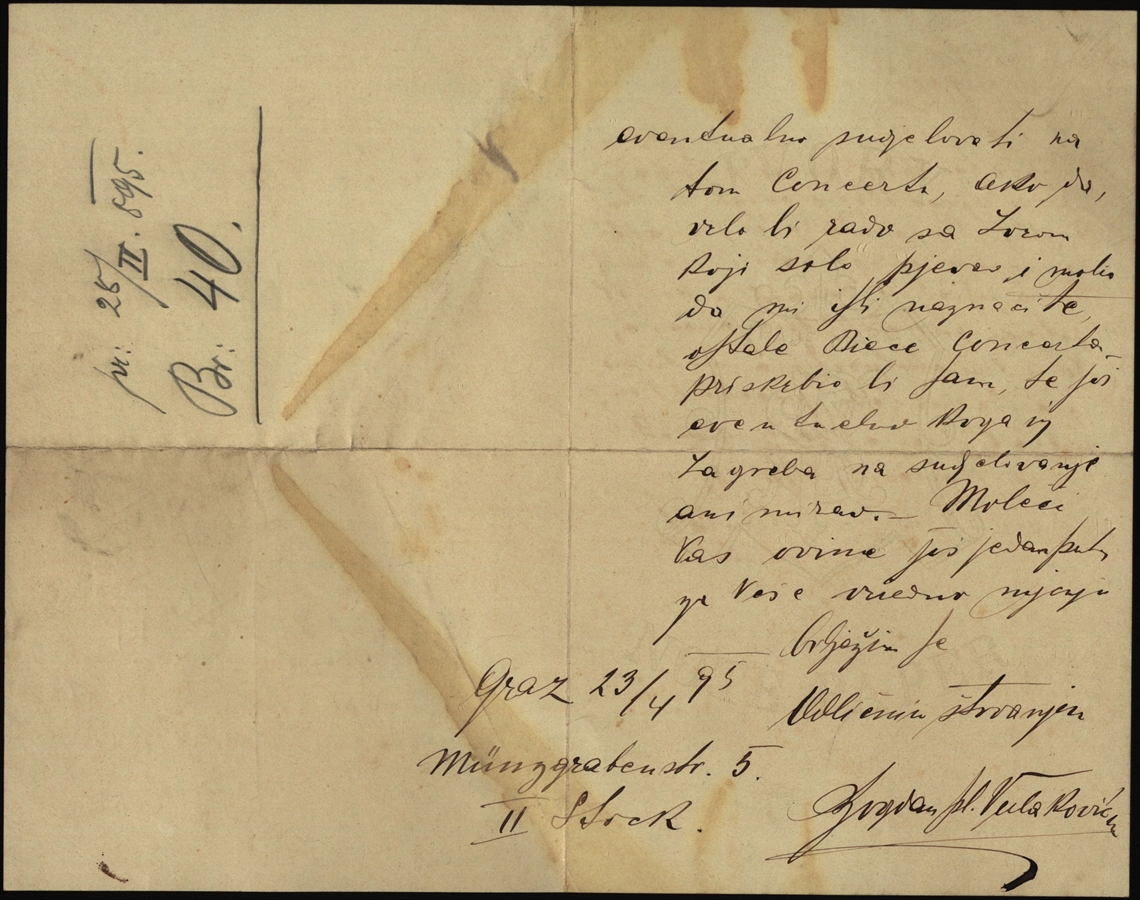 pr: 25/II. 895.
Br: 40.
eventualno sudjelovati na
tom Concertu, ako da,
vrlo bi rado sa Zorom
koji solo pjevao i molio
da mi isti naznačite,
ostale Piece Concerta
priskrbio bi sam, te još
eventuelno koga iz
Zagreba na sudjelovanje
animirao. — Moleći
Vas ovime još jedanput
za Vaše vriedno mjenje
bilježim se
Odličnim štovanjem
Graz 23/4 95
Münzgrabenstr. 5.
II Stock.
Bogdan pl. Vukaković